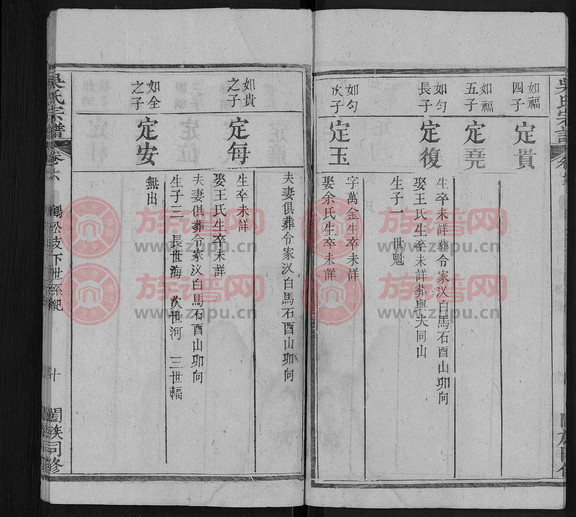 吳氏宗譜
如福
四子
定貴
如福
五子
定堯
如勻
長子
定復
生卒未詳葬令家汊白馬石酉山卯向
娶王氏生卒未詳葬與夫同山
生子一 世魁
如勻
次子
定玉
字萬金生卒未詳
娶余氏生卒未詳
如貴
之子
定每
夫妻俱葬令家汊白馬石酉山卯向
如全
之子
定安
生卒未詳
娶王氏生卒未詳
夫妻俱葬令家汊白馬石酉山卯向
生子三 長世海 次世河 三世輻
無出
吳氏宗譜
卷六
鶴松支下世系紀
十
闔族同修
族譜网
www.zupu.cn
族譜网
www.zupu.cn
族譜网
www.zupu.cn